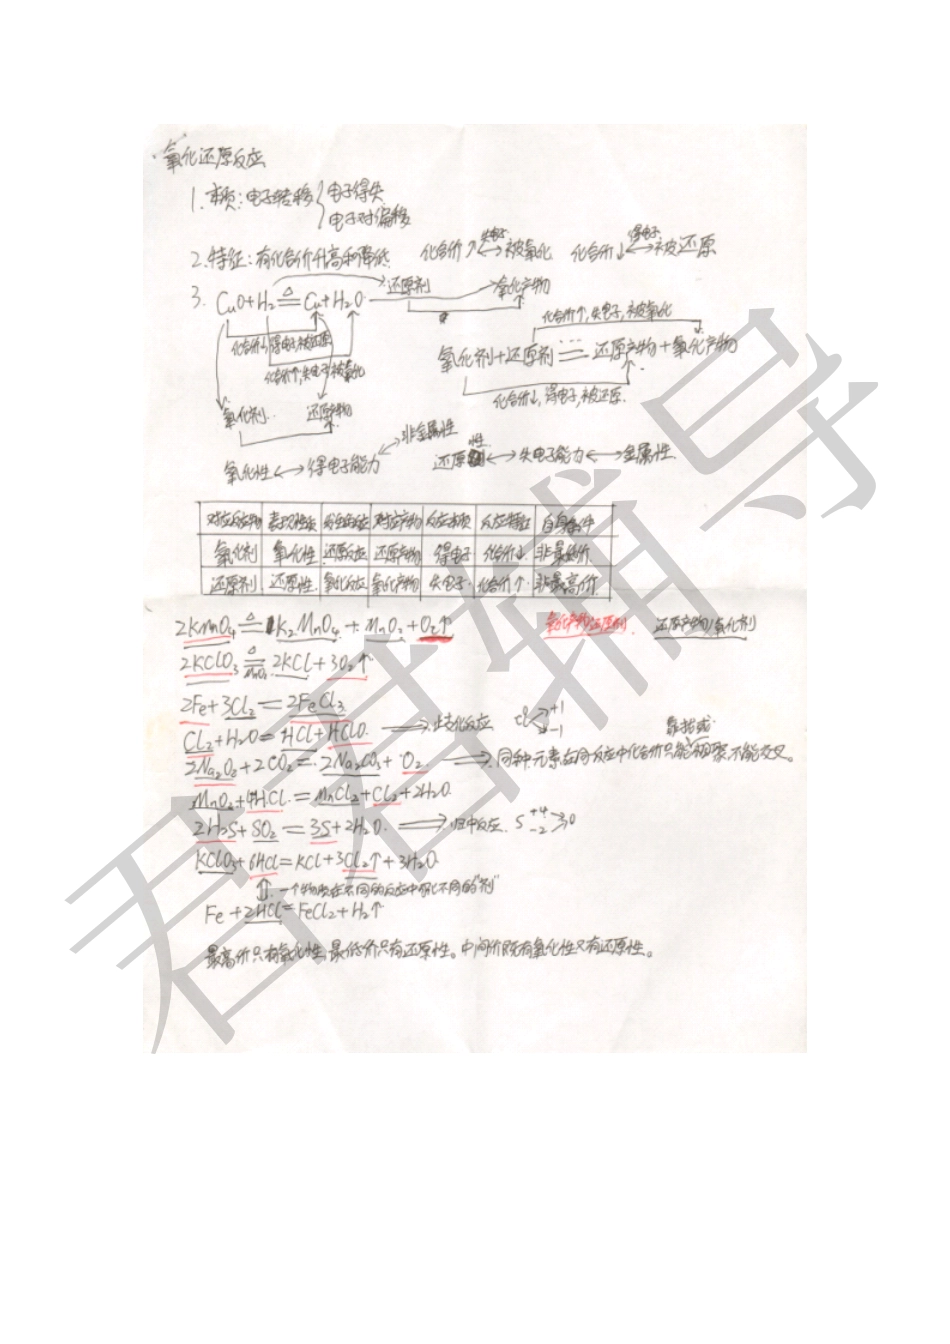 氧化还原反应
1. 本质:电子转移{电子得失
电子对偏移
2.特征:有化合价升高和降低. 化合价↑ 失电子 ↔ 被氧化 化合价↓ 得电子 ↔ 被还原
3. CuO+H₂ ≜ Cu+H₂O
还原剂 氧化产物
化合价↓,得电子,被还原
化合价↑,失电子,被氧化
氧化剂 还原产物
化合价↑,失电子,被氧化
氧化剂+还原剂 == 还原产物+氧化产物
化合价↓,得电子,被还原.
氧化性↔得电子能力↔非金属性
还原性↔失电子能力↔金属性
对应反应物 表现性质 发生反应 对应产物 反应本质 反应特征 自身条件
氧化剂 氧化性 还原反应 还原产物 得电子 化合价↓ 非最低价
还原剂 还原性 氧化反应 氧化产物 失电子 化合价↑ 非最高价
2KMnO₄ ≜ K₂MnO₄ + MnO₂ + O₂↑ 氧化产物/还原剂 还原产物/氧化剂
2KClO₃ ≜ MnO₂ 2KCl + 3O₂↑
2Fe+3Cl₂ = 2FeCl₃
Cl₂+H₂O=HCl+HClO ⇒ 歧化反应 Cl +1 -1
2Na₂O₂+2CO₂=2Na₂CO₃+O₂ ⇒ 同种元素在同反应中化合价只能靠拢或相聚,不能交叉。
MnO₂+4HCl=MnCl₂+Cl₂+2H₂O
2H₂S+SO₂=3S+2H₂O ⇒ 归中反应 S +4 -2 → 0
KClO₃+6HCl=KCl+3Cl₂↑+3H₂O
⇕ 一个物质在不同的反应中可化不同的"剂"
Fe+2HCl=FeCl₂+H₂↑
最高价只有氧化性,最低价只有还原性。中间价既有氧化性又有还原性。
君君辅导